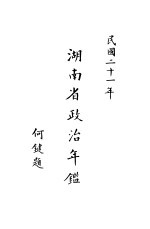 民國二十一年
湖南省政治年鑑
何鍵題